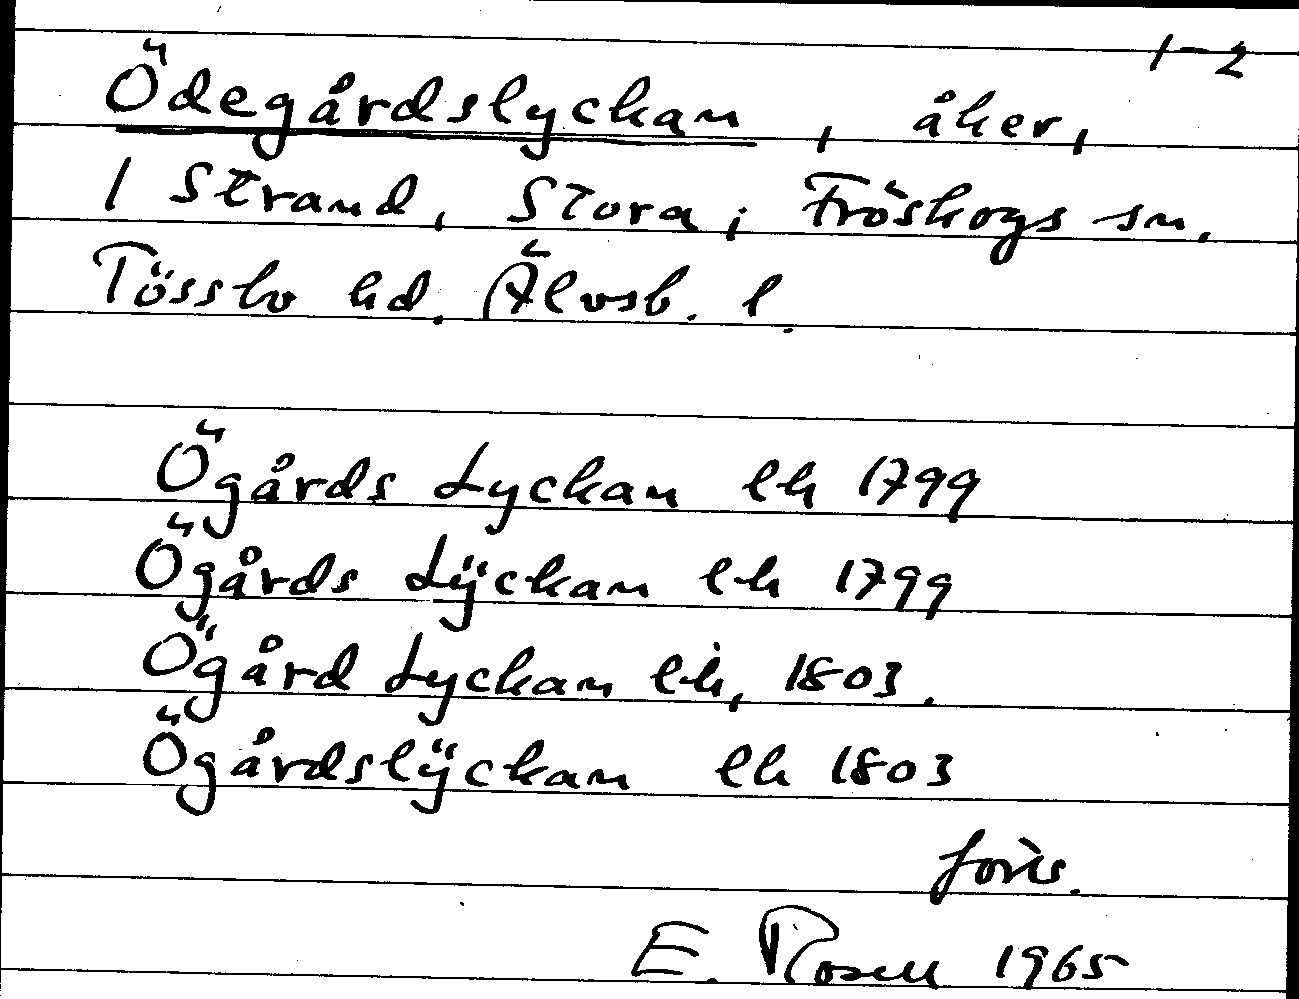 1-2
Ödegårdslyckan, åker,
1 Strand, Stora; Fröskogs sn.
Tössbo hd. Älvsb. l.
Ögårds Lyckan lh 1799
Ögårds Lÿckan lh 1799
Ögård Lyckan lh, 1803.
Ögårdslÿckan lh 1803
forts.
E. Rosell 1965